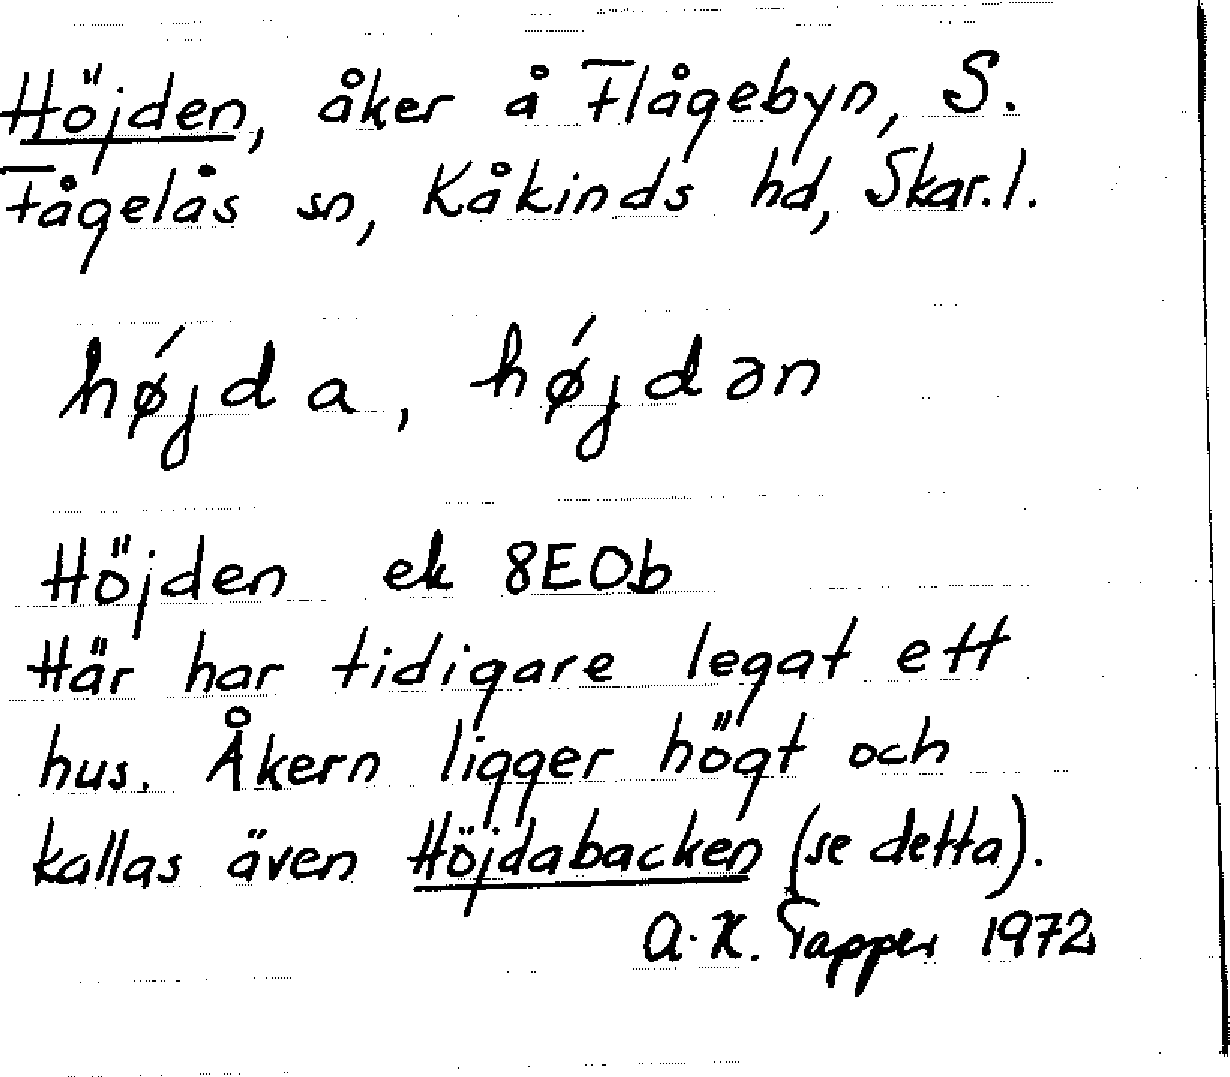 Höjden, åker å Flågebyn, S.
Fågelås sn, Kåkinds hd, Skar.l.
hǿjda, hǿjdən
Höjden ek 8E0b
Här har tidigare legat ett
hus. Åkern ligger högt och
kallas även Höjdabacken (se detta).
A.K. Tapper 1972